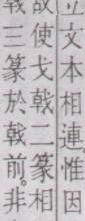 立文本相連。惟因
故使戈戟二篆相
戟三篆於戟前。非